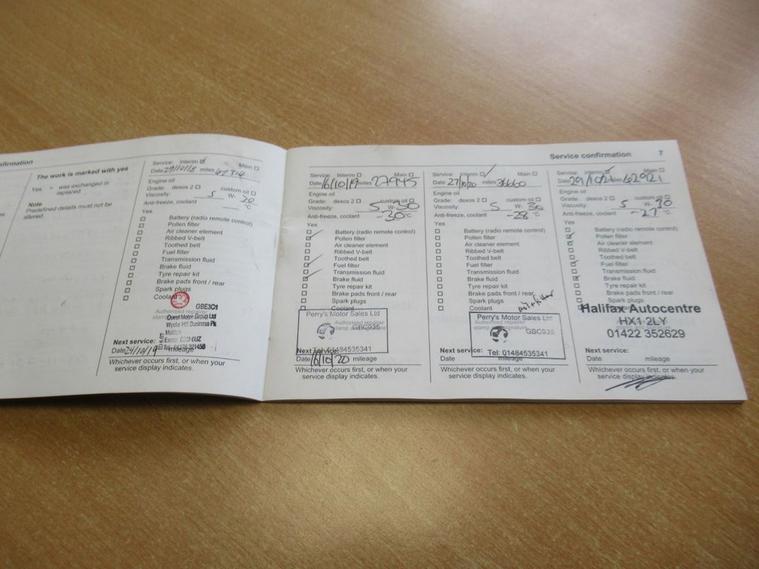 Service confirmation 7
The work is marked with yes
Yes = was exchanged or
replaced
Note
Predefined details must not be
altered.
Service: Interim Main
Date miles
Engine oil
Grade: dexos 2 custom oil
Viscosity: 5 W-30
°C
Anti-freeze, coolant
Yes
Battery (radio remote control)
Pollen filter
Air cleaner element
Ribbed V-belt
Toothed belt
Fuel filter
Transmission fluid
Brake fluid
Tyre repair kit
Brake pads front / rear
Spark plugs
Coolant
GBE301
Quest Motor Group Ltd
Next service:
Date mileage
Whichever occurs first, or when your
service display indicates.
Service: Interim Main
Date 16/10/19 miles 27945
Engine oil
Grade: dexos 2 custom oil
Viscosity: 5 W-30
Anti-freeze, coolant -30°C
Yes
Battery (radio remote control)
Pollen filter
Air cleaner element
Ribbed V-belt
Toothed belt
Fuel filter
Transmission fluid
Brake fluid
Tyre repair kit
Brake pads front / rear
Spark plugs
Coolant
Perry's Motor Sales Ltd
GBC935
Tel: 01484535341
Next service:
Date 16/10/20 mileage
Whichever occurs first, or when your
service display indicates.
Service: Interim Main
Date 27/10/20 miles 36660
Engine oil
Grade: dexos 2 custom oil
Viscosity: 5 W-30
Anti-freeze, coolant -28 °C
Yes
Battery (radio remote control)
Pollen filter
Air cleaner element
Ribbed V-belt
Toothed belt
Fuel filter
Transmission fluid
Brake fluid
Tyre repair kit
Brake pads front / rear
Spark plugs
Coolant
Perry's Motor Sales Ltd
GBC935
Tel: 01484535341
Next service:
Date mileage
Whichever occurs first, or when your
service display indicates.
Service: Interim Main
Date miles
Engine oil
Grade: dexos 2 custom oil
Viscosity: 5 W-
Anti-freeze, coolant -27 °C
Yes
Battery (radio remote control)
Pollen filter
Air cleaner element
Ribbed V-belt
Toothed belt
Fuel filter
Transmission fluid
Brake fluid
Tyre repair kit
Brake pads front / rear
Spark plugs
Halifax Autocentre
HX1 2LY
01422 352629
Next service:
Date mileage
Whichever occurs first, or when your
service display indicates.